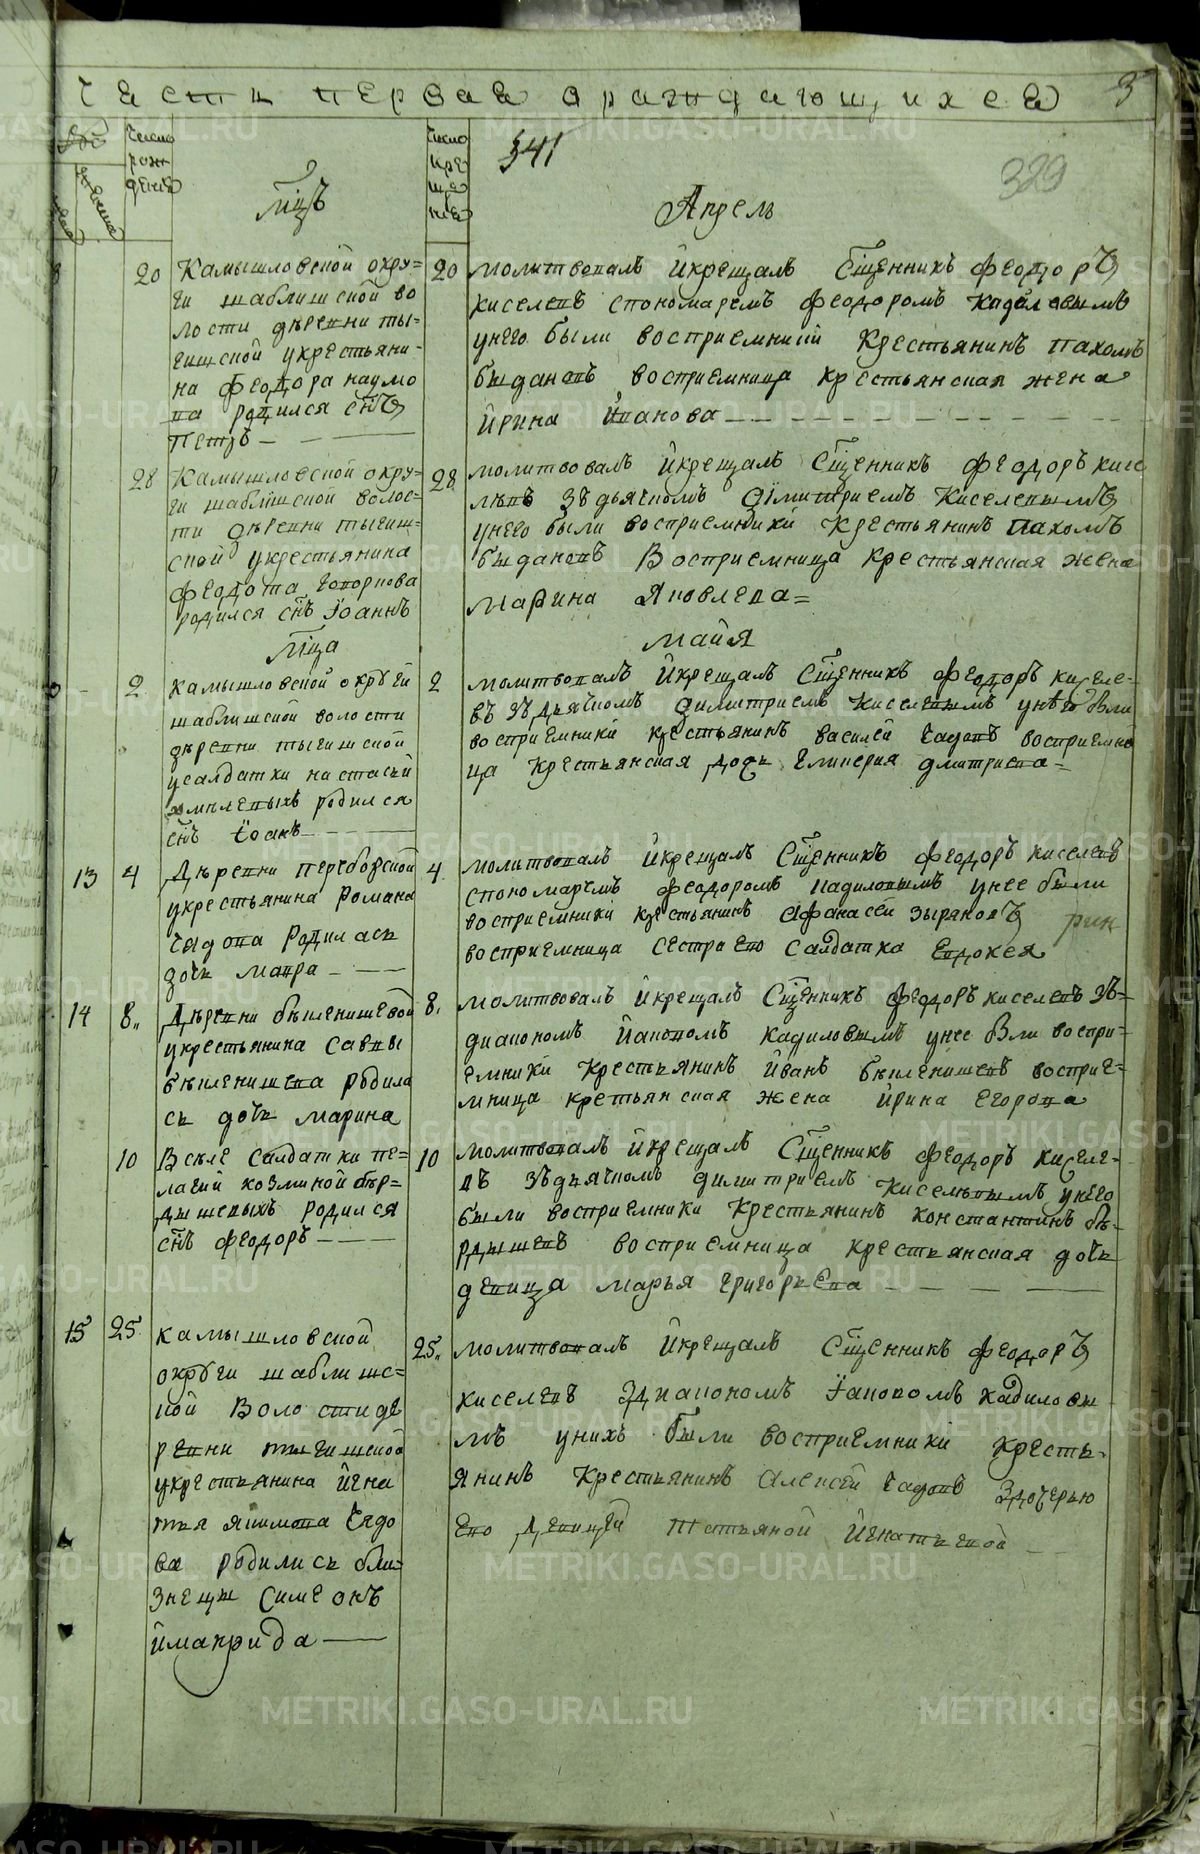 Части первая ораждающихся 3
541
329
Число рождения
Число крещения
Мцъ
Апрель
20
Камышловской окру=
ги шаблишской во
лости деревни ты=
гишской укрестьяни-
на Феодора наумо
ва родился снъ
Петръ —
20
молитвовалъ Икрещалъ Сщенникъ Феодоръ
киселевъ спономаремъ Феодоромъ Кадиловымъ
унего были восприемники Крестьянинъ Пахомъ
быдановъ восприемница крестьянская жена
Ирина Иванова
28
Камышловской окру=
ги шаблишской волос=
ти деревни тыгиш=
ской укрестьянина
Феодота
родился снъ Iоаннъ
28
молитвовалъ Икрещалъ Сщенникъ Феодоръ кисе
левъ зъдьячкомъ Димитриемъ Киселевымъ
унего были восприемники Крестьянинъ Пахомъ
быдановъ Восприемница Крестьянская жена
Марина Яковлева=
Мца
Майя
2
Камышловской округи
шаблишской волости
деревни тыгишской
усалдатки настасьи
родился
снъ Iоанъ
2
молитвовалъ Икрещалъ Сщенникъ Феодоръ киселе-
въ зъдьячкомъ димитриемъ Киселевымъ унего были
восприемники крестьянинъ василей Чадовъ восприемни
ца Крестьянская дочь Гликерия дмитриева=
13 4
Деревни переборской
укрестьянина Романа
Чадова Родилась
дочь мавра
4
молитвовалъ Икрещалъ Сщенникъ Феодоръ киселевъ
спономаремъ Феодоромъ кадиловымъ унее были
восприемники крестьянинъ Афанасей зыряновъ
восприемница сестра ево салдатка Евдокея
14 8
Деревни бѣленишевой
укрестьянина Саввы
бѣленишева родила
сь дочь марина
8
молитвовалъ Икрещалъ Сщенникъ Феодоръ киселевъ зъ=
диакономъ Иаковомъ Кадиловымъ унее были воспри-
емники Крестьянинъ Иванъ бѣленишевъ восприе=
мница кретьянская жена Ирина Егорова
10
Всѣле салдатки пе=
лагии козминой бер=
дышевыхъ родился
снъ Феодоръ
10
молитвовалъ Икрещалъ Сщенникъ Феодоръ киселе-
въ зъдьячкомъ димитриемъ Киселевымъ унего
были восприемники Крестьянинъ Константинъ бѣ-
рдышевъ восприемница крестьянская дочь
девица марья григорьева
15 25
Камышловской
округи шаблишс=
кой Волости де
ревни тыгишской
укрестьянина Игна
тья якимова Чадо
ва родились бли=
знецы Симеонъ
имаврида —
25
молитвовалъ Икрещалъ Сщенникъ Феодоръ
киселевъ здиакономъ Iаковомъ Кадиловы
мъ унихъ были восприемники кресть-
янинъ Крестьянинъ Алексей Чадовъ Здочерью
Ево Девицей Татьяной Игнатьевой